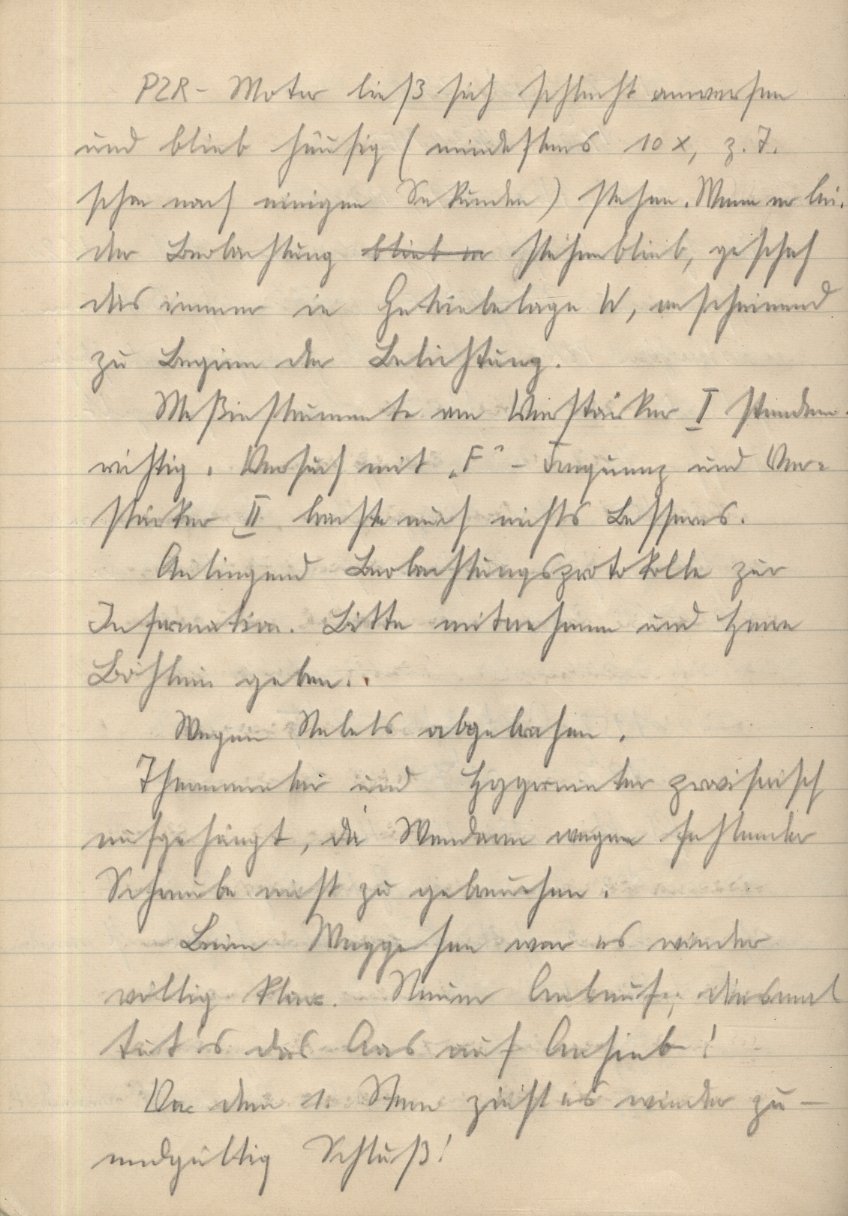 PZR - Motor ließ sich schlecht anwerfen
und blieb häufig (mindestens 10 x, z. T.
schon nach einigen Sekunden) stehen. Wenn er bei
der Beobachtung blieb er stehenblieb, geschah
das immer in Getriebelage W, anscheinend
zu Beginn der Belichtung.
Meßinstrumente am Verstärker I standen
richtig. Versuch mit „F" - Frequenz und Ver-
stärker II brachte auch nichts Besseres.
Anliegend Beobachtungsprotokolle zur
Information. Bitte mitnehmen und Herrn
geben.
Wegen Nebels abgebrochen.
Thermometer und Hygrometer provisorisch
aufgehängt, da Wandarm wegen fehlender
Schraube nicht zu gebrauchen.
Beim Weggehen war es wieder
völlig klar. Neuer Anlauf, diesmal
tut's das Aas auf Anhieb!
Vor dem 1. Stern zieht es wieder zu -
endgültig Schluß!